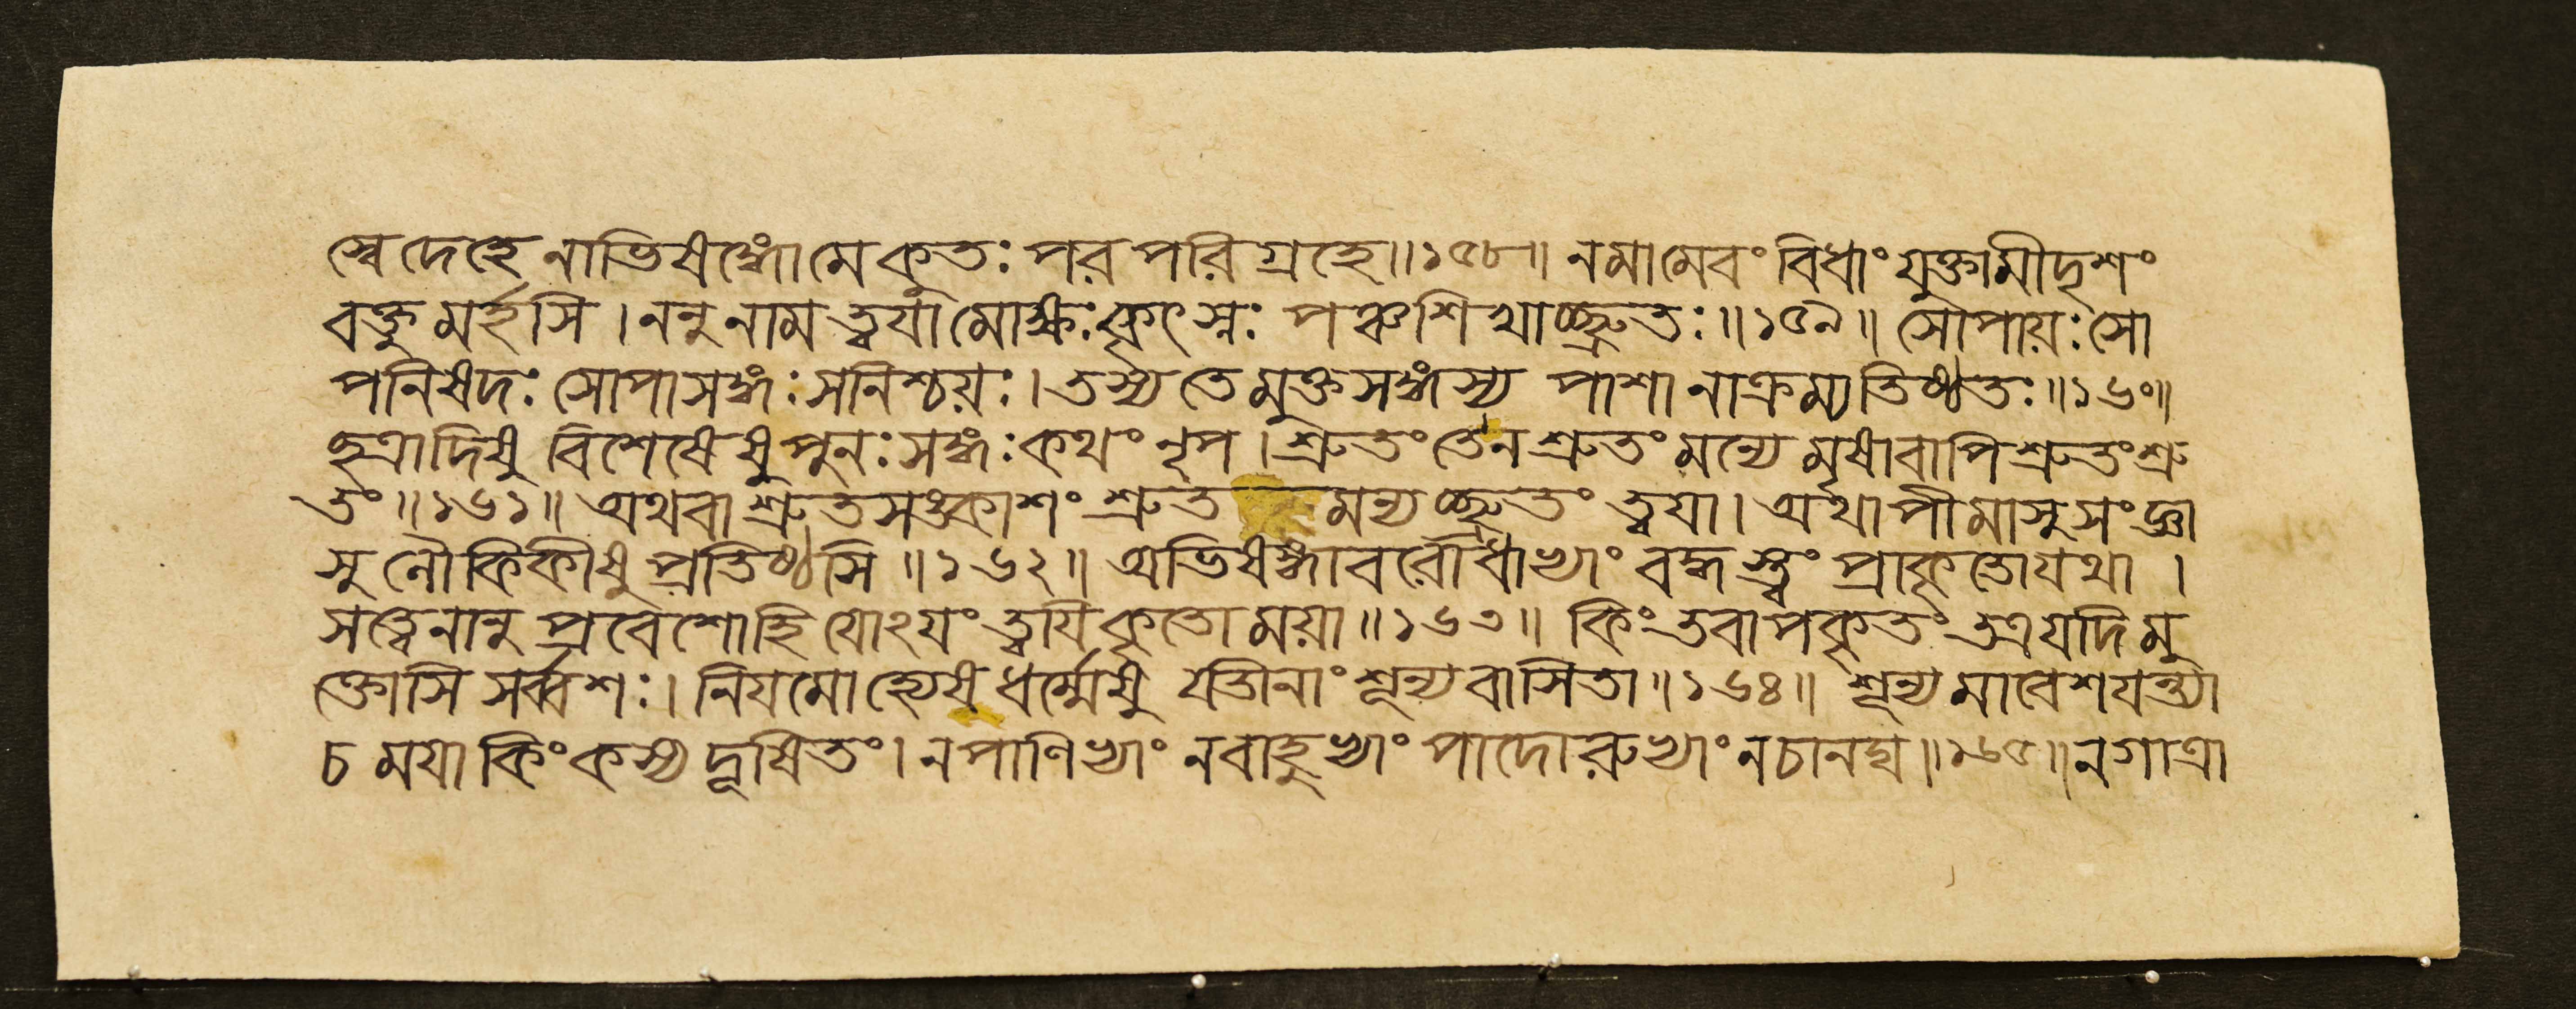 স্বে দেহে নাভিষঙ্গো মে কুতঃ পর পরিগ্রহে॥১৫৮॥ ন মামেবং বিধাং যুক্তামীদৃশং
বক্তু মর্হসি । ননু নাম ত্বয়া মোক্ষঃ কৃৎস্নঃ পঞ্চশিখাচ্ছ্রুতঃ ॥১৫৯॥ সোপায়ঃ সো
পনিষদঃ সোপাসঙ্গঃ সনিশ্চয়ঃ । তস্য তে মুক্তসঙ্গস্য পাশানাক্রম্য তিষ্ঠতঃ ॥১৬০॥
ছত্রাদিষু বিশেষেষু পুনঃ সঙ্গঃ কথং নৃপ । শ্রুতং তে ন শ্রুতং মন্যে মৃষা বাপি শ্রুতং শ্রু
তং ॥১৬১॥ অথবা শ্রুতসঙ্কাশং শ্রুত মন্যচ্ছ্রুতং ত্বয়া । অথাপীমাসু সংজ্ঞা
সু লৌকিকীষু প্রতিষ্ঠসি ॥১৬২॥ অভিষঙ্গাবরোধাভ্যাং বদ্ধস্ত্বং প্রাকৃতো যথা ।
সত্ত্বেনানু প্রবেশো হি যোঽয়ং ত্বয়ি কৃতো ময়া ॥১৬৩॥ কিং তবাপকৃতং তত্র যদি মু
ক্তোসি সর্ব্বশঃ । নিয়মো হ্যেষ ধর্ম্মেষু যতীনাং শূন্য বাসিতা ॥১৬৪॥ শূন্য মাবেশয়ন্ত্যা
চ ময়া কিং কস্য দূষিতং । ন পাণিভ্যাং ন বাহুভ্যাং পাদোরুভ্যাং ন চানঘ ॥১৬৫॥ ন গাত্রা